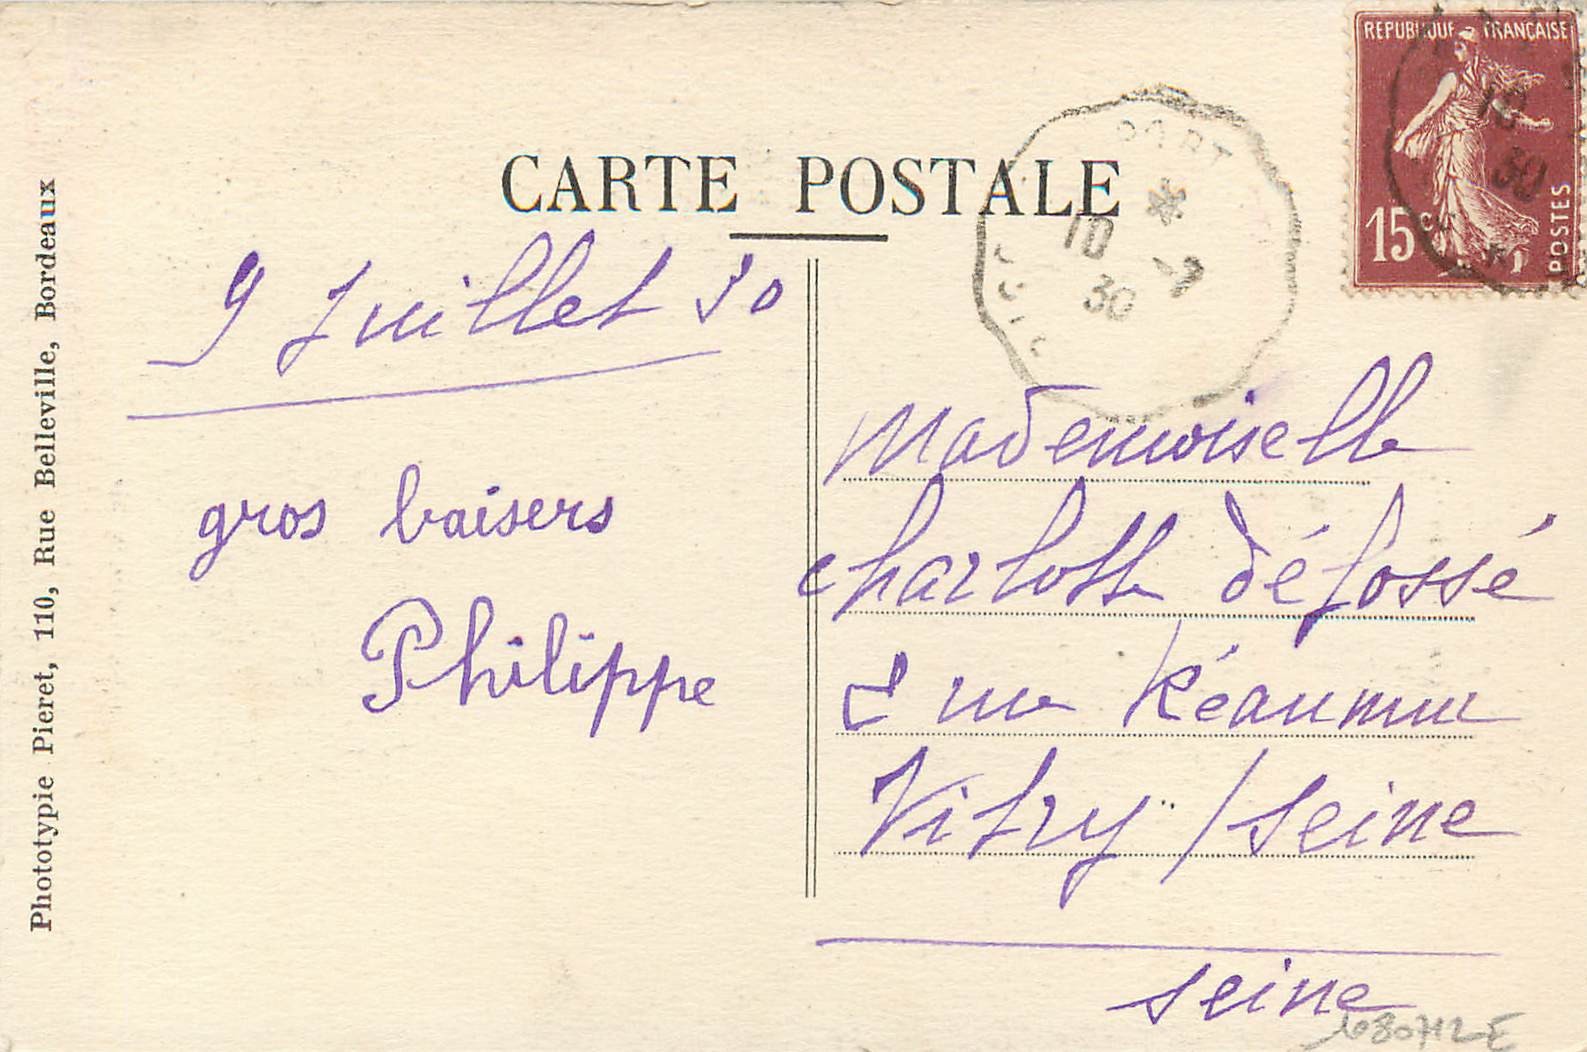 CARTE POSTALE
REPUBLIQUE FRANÇAISE
15c
POSTES
10
30
PART
10 -7
30
Phototypie Pieret, 110, Rue Belleville, Bordeaux
9 Juillet 30
gros baisers
Philippe
Mademoiselle
Charlotte Défossé
2 rue Réaumur
Vitry / Seine
Seine